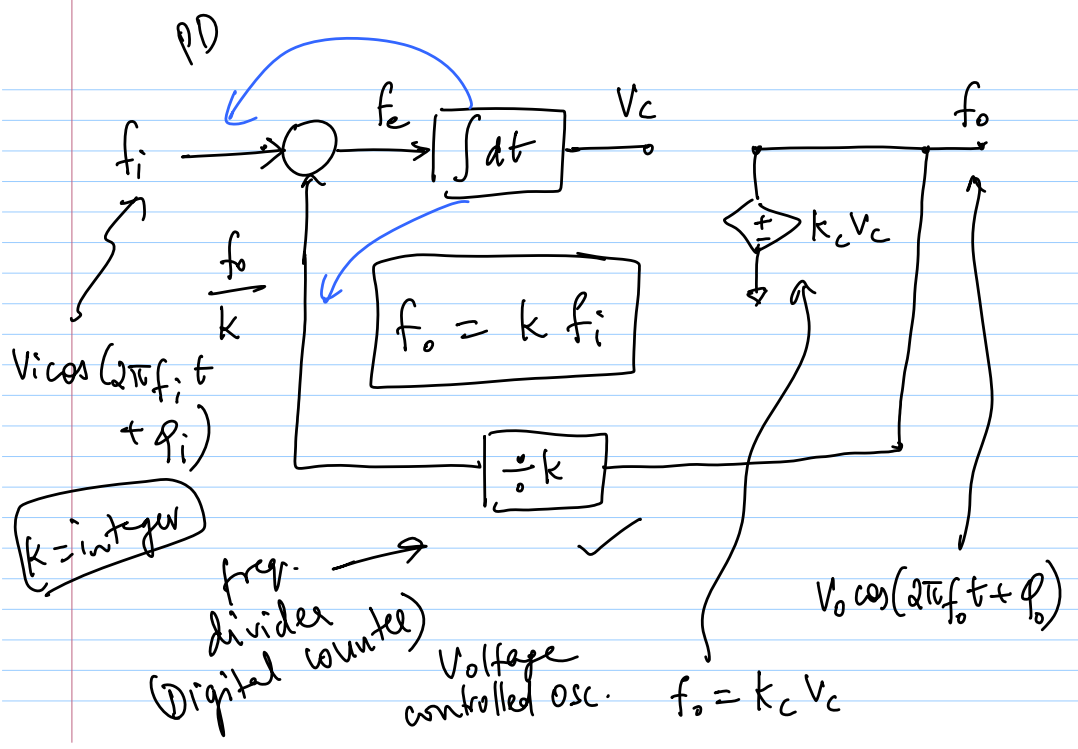 PD
fi
fe
∫dt
Vc
fo
+
−
kcVc
fo
k
fo = k fi
Vi cos(2πfit
+ φi)
÷k
k = integer
freq.
divider
(Digital counter)
Voltage
controlled osc.
fo = kc Vc
Vo cos(2πfot + φo)